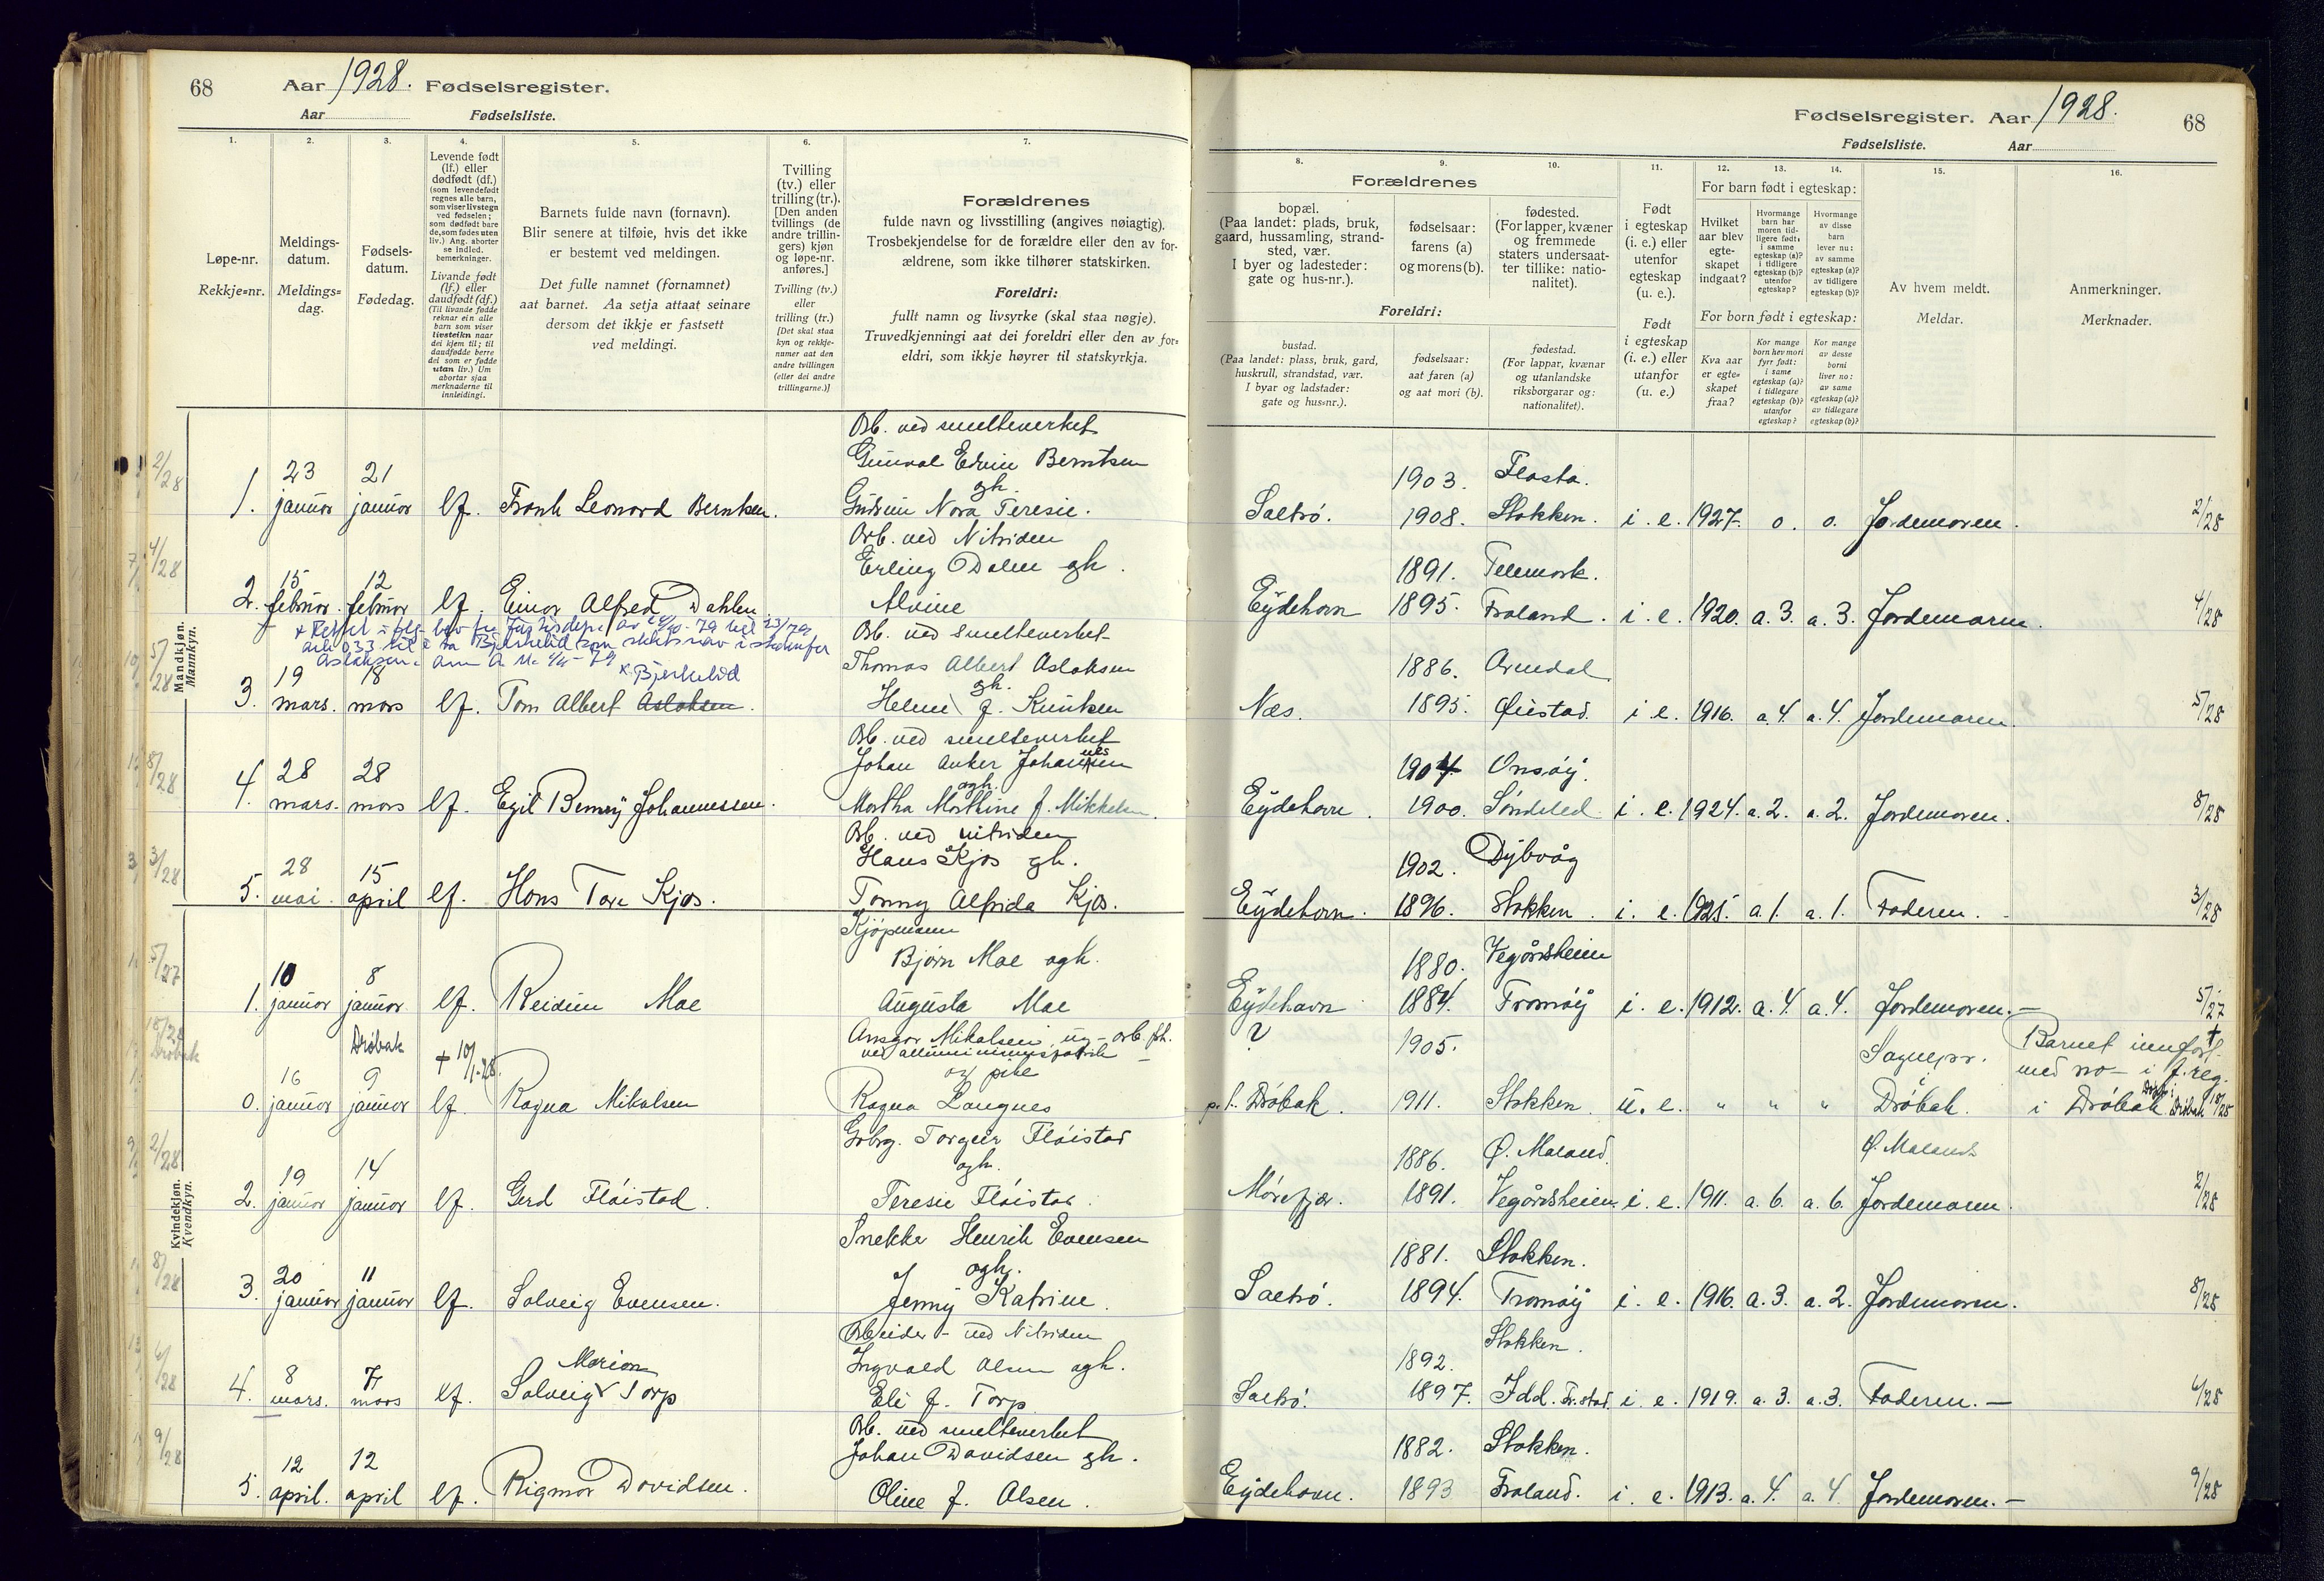 68 Aar 1928. Fødselsregister.
Aar Fødselsliste.
1. 2. 3. 4. 5. 6. 7.
Løpe-nr.
Rekkje=nr.
Meldings-
datum.
Meldings=
dag.
Fødsels-
datum.
Fødedag.
Levende født
(lf.) eller
dødfødt (df.)
(som levendefødt
regnes alle barn,
som viser livstegn
ved fødselen;
som dødfødt bare
de, som fødes uten
liv.) Ang. aborter
se indled.
bemerkninger.
Livande født
(lf.) eller
daudfødt (df.)
(Til livande fødde
reknar ein alle
barn som viser
livsteikn naar
dei kjem til; til
daudfødde berre
dei som er fødde
utan liv.) Um
abortar sjaa
merknaderne til
innleidingi.
Barnets fulde navn (fornavn).
Blir senere at tilføie, hvis det ikke
er bestemt ved meldingen.
Det fulle namnet (fornamnet)
aat barnet. Aa setja attaat seinare
dersom det ikkje er fastsett
ved meldingi.
Tvilling
(tv.) eller
trilling (tr.).
[Den anden
tvillings (de
andre trillin-
gers) kjøn
og løpe-nr.
anføres.]
Tvilling (tv.)
eller
trilling (tr.)
[Det skal staa
kyn og rekkje-
numer aat den
andre tvillingen
(eller dei andre
trillingarne.)]
Forældrenes
fulde navn og livsstilling (angives nøiagtig).
Trosbekjendelse for de forældre eller den av for-
ældrene, som ikke tilhører statskirken.
Foreldri:
fullt namn og livsyrke (skal staa nøgje).
Truvedkjenningi aat dei foreldri eller den av for=
eldri, som ikkje høyrer til statskyrkja.
Mandkjøn.
Mannkyn.
Arb. ved smelteverket
Gunval Edvin Berntsen
2/28 23 21 gh.
1. januar januar lf. Frank Leonard Berntsen. Gudrun Nora Teresie.
Arb. ved Nitriden
4/28 Erling Dalen gh.
15 12
2. februar. februar lf. Einar Alfred Dahlen. Alvine
Arb. ved smelteverket
5/28 19 18 x Bjerkelid Thomas Albert Aslaksen
gh.
3. mars. mars lf. Tom Albert Aslaksen. Helene f. Knutsen
Arb. ved smelteverket
8/28 28 28 Johan Anker Johannes
agh.
4. mars. mars lf. Egil Benny Johannessen. Martha Mathine f. Mikkelsen.
Arb. ved nitriden
3/28 28 15 Hans Kjos gh.
5. mai. april lf. Hans Tore Kjos. Tonny Alfrida Kjos.
Kvindekjøn.
Kvendkyn.
Kjøpmann
5/27 10 8 Bjørn Moe agh.
1. januar januar lf. Reidun Moe Augusta Moe
18/28 Drøbak Drøbak + 10/1-28. Ansgar Mikalsen, ug-arb.
ved alluminiumsfabrik
16 9 og pike
0. januar januar lf. Ragna Mikalsen Ragna Langnes
Grbrg. Torgeir Fløistad
2/28 19 14 agh.
2. januar januar lf. Gerd Fløistad. Teresie Fløistad.
Snekker Henrik Evensen
8/28 20 11 agh.
3. januar januar lf. Solveig Evensen. Jenny Katrine.
Arbeider - ved Nitriden
6/28 8 7 Marion Ingvald Olsen agh.
4. mars. mars lf. Solveig Torp Eli f. Torp
Arb. ved smelteverket
9/28 12 12 Johan Davidsen gh.
5. april. april lf. Rigmor Davidsen. Oline f. Olsen.
Fødselsregister. Aar 1928. 68
Fødselsliste. Aar
8. 9. 10. 11. 12. 13. 14. 15. 16.
Forældrenes
bopæl.
(Paa landet: plads, bruk,
gaard, hussamling, strand-
sted, vær.
I byer og ladesteder:
gate og hus-nr.).
fødselsaar:
farens (a)
og morens (b).
fødested.
(For lapper, kvæner
og fremmede
staters undersaat-
ter tillike: natio-
nalitet).
Foreldri:
bustad.
(Paa landet: plass, bruk, gard,
huskrull, strandstad, vær.
I byar og ladstader:
gate og hus=nr.).
fødselsaar:
aat faren (a)
og aat mori (b).
fødestad.
(For lappar, kvænar
og utanlandske
riksborgarar og:
nationalitet).
Født
i egteskap
(i. e.) eller
utenfor
egteskap
(u. e.).
Født
i egteskap
(i. e.) eller
utanfor
(u. e.)
For barn født i egteskap:
Hvilket
aar blev
egte-
skapet
indgaat?
Hvormange
barn har
moren tid-
ligere født:
i samme
egteskap (a)?
i tidligere
egteskap (b)?
utenfor
egteskap?
Hvormange
av disse
barn
lever nu:
av samme
egteskap (a)?
av tidligere
egteskap (b)?
For born født i egteskap:
Kva aar
er egte=
skapet
fraa?
Kor mange
born hev mori
fyrr født:
i same
egteskap (a)?
i tidlegare
egteskap (b)?
utanfor
egteskap?
Kor mange
av desse
borni
liver no:
av same
egteskap (a)?
av tidlegare
egteskap (b)?
Av hvem meldt.
Meldar.
Anmerkninger.
Merknader.
1903. Flosta.
Saltrø. 1908. Stokken. i. e. 1927. 0. 0. Jordemoren. 2/28
1891. Telemark.
Eydehavn 1895. Froland. i. e. 1920. a. 3. a. 3. Jordemoren. 4/28
1886. Arendal
Nes. 1895. Øiestad. i e. 1916. a. 4. a. 4. Jordemoren. 5/28
1904. Onsøy.
Eydehavn. 1900. Søndeled i. e. 1924. a. 2. a. 2. Jordemoren. 8/28
1902. Dybvåg
Eydehavn. 1896. Stokken. i. e. 1925. a. 1. a. 1. Faderen. 3/28
1880. Vegårdsheim
Eydehavn 1884. Tromøy i e. 1912. a. 4. a 4. Jordemoren. - 5/27
? 1905. Sognepr. Barnet innført
i med no - i f. reg.
p. t. Drøbak. 1911. Stokken. u. e. " " " Drøbak. i Drøbak Drøbak 18/28
1886. Ø. Moland. Ø. Moland
Mørefjær. 1891. Vegårdsheim. i. e. 1911. a. 6. a. 6. Jordemoren. 2/28
1881. Stokken.
Saltrø. 1894. Tromøy i. e. 1916. a. 3. a. 2. Jordemoren. 8/28
1892. Stokken.
Saltrø. 1897. Idd. Fr.stad. i. e. 1919. a. 3. a. 3. Faderen. - 6/28
1882. Stokken.
Eydehavn. 1893 Froland. i. e. 1913. a. 4. a. 4 Jordemoren. - 9/28